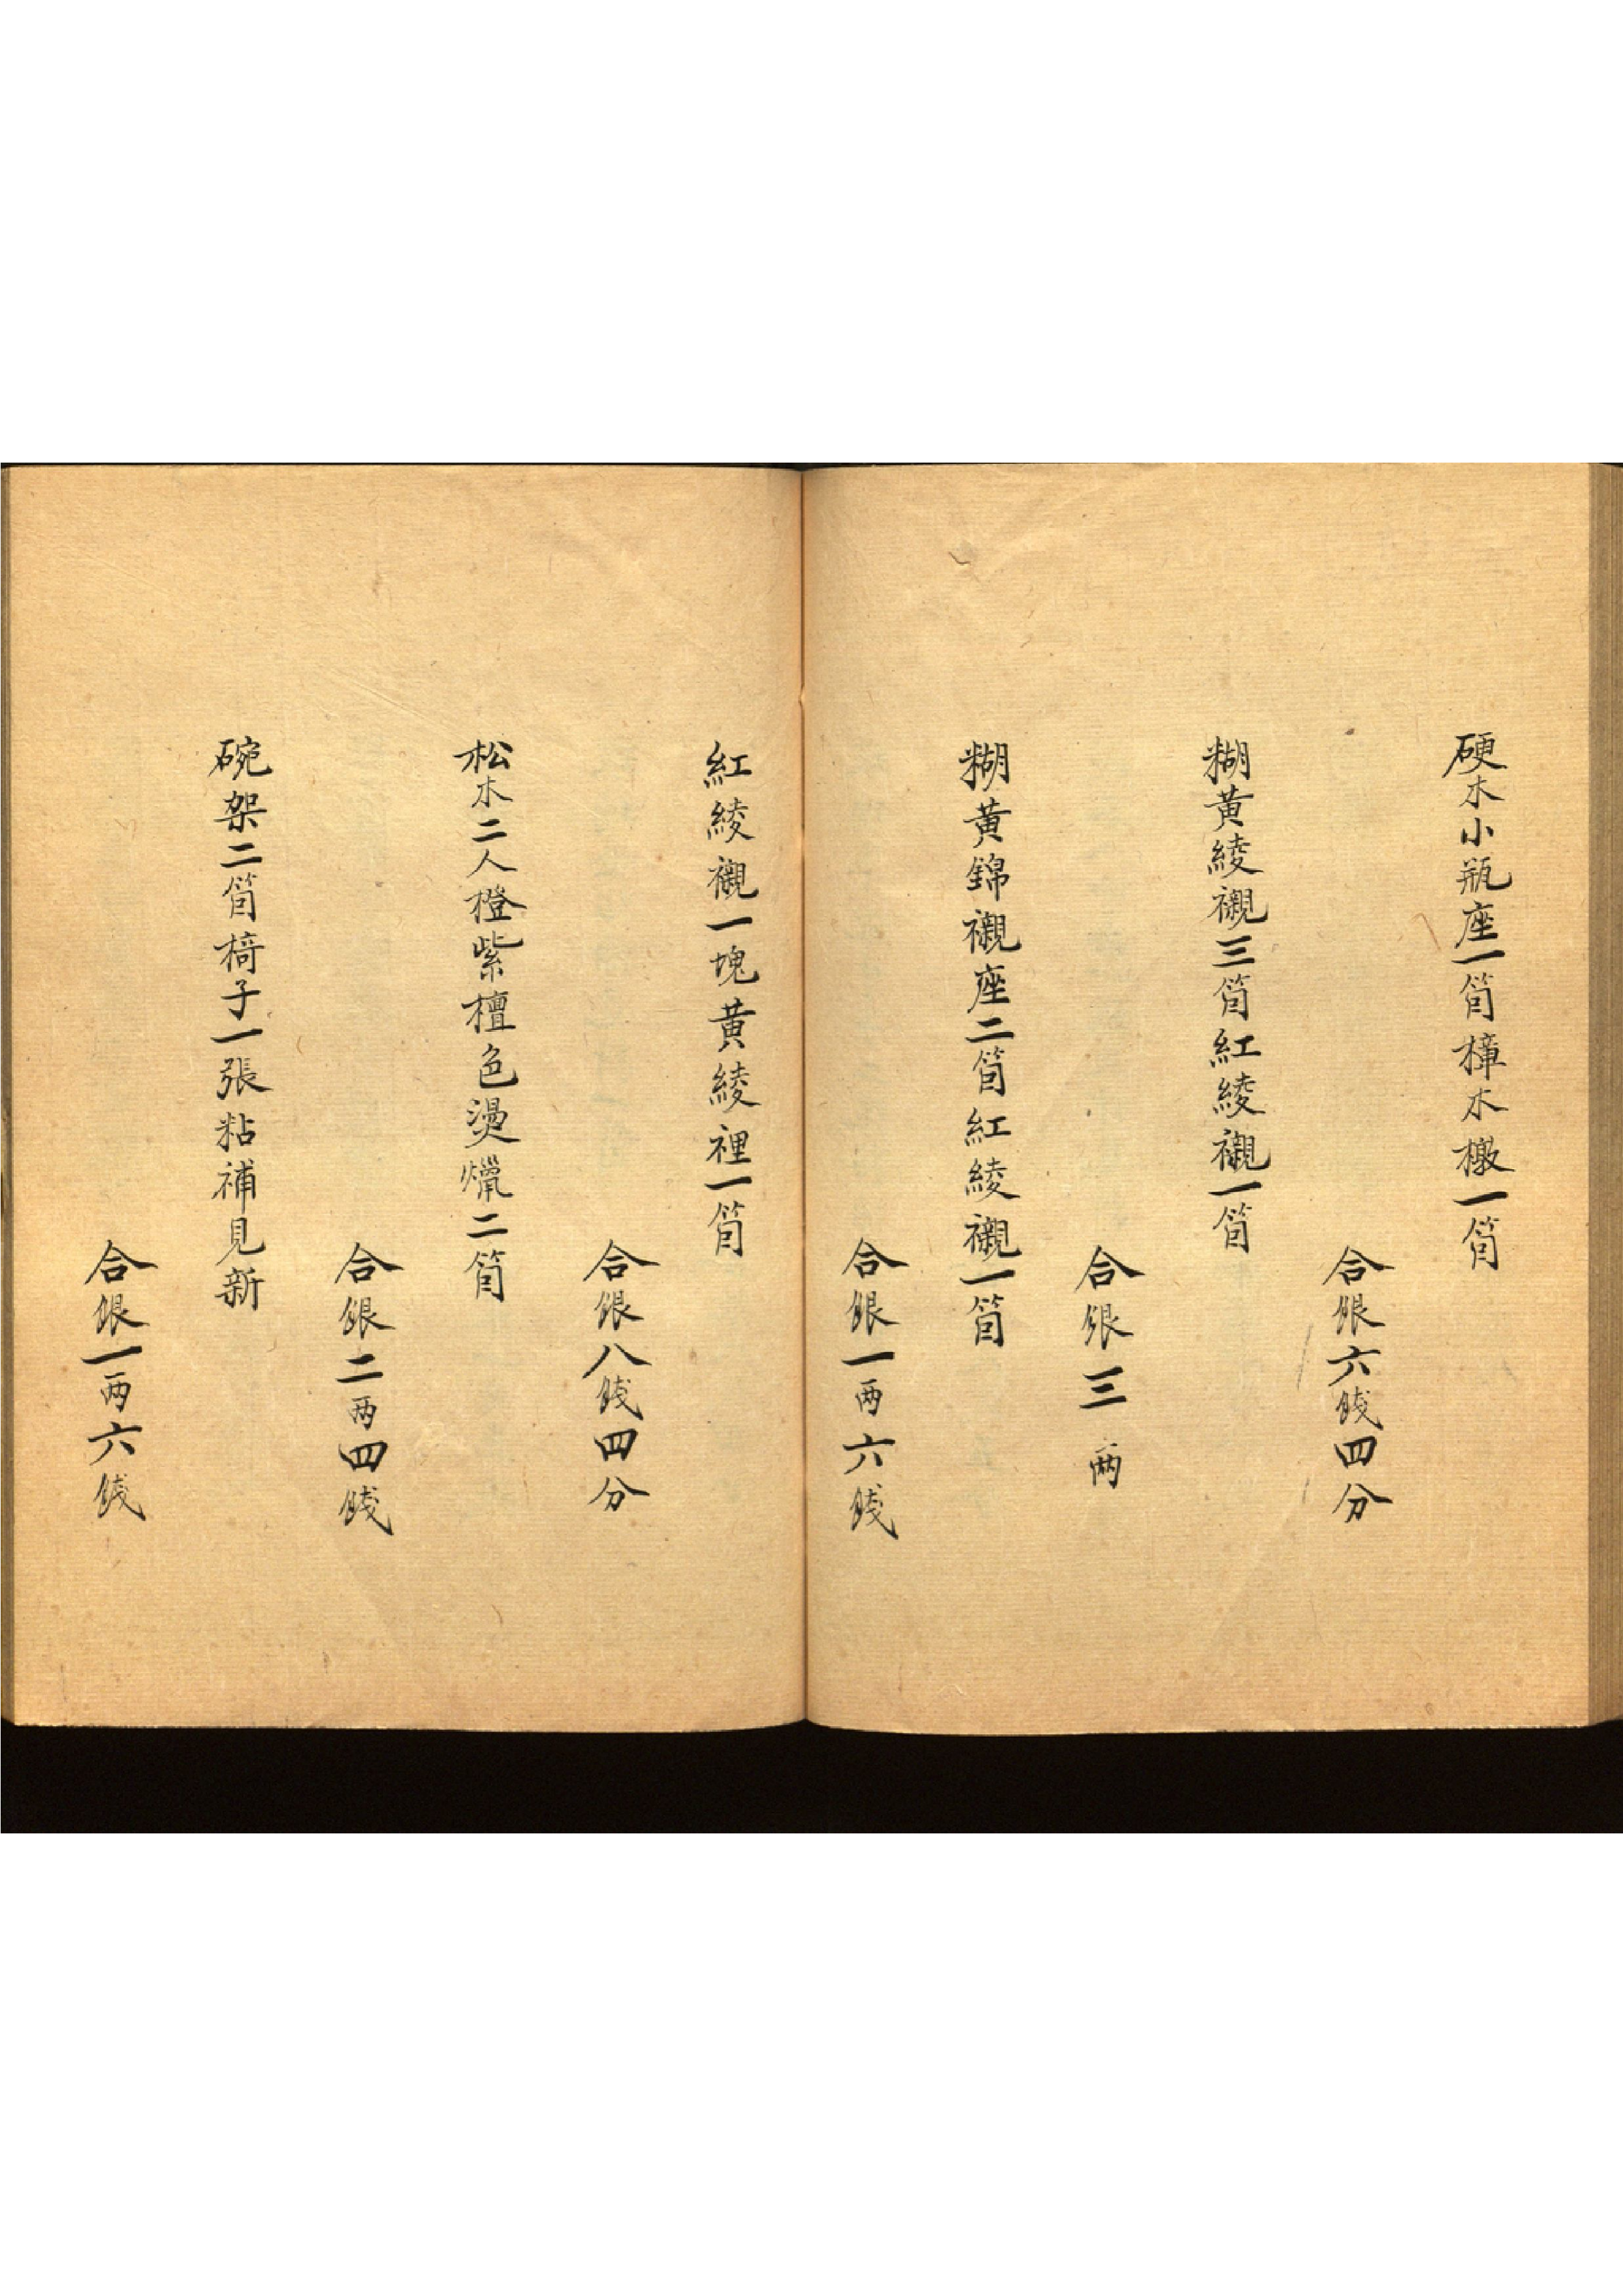 硬木小瓶座一箇樟木橔一箇
合銀六錢四分
糊黃綾襯三箇紅綾襯一箇
合銀三兩
糊黃錦襯座二箇紅綾襯一箇
合銀一兩六錢
紅綾襯一塊黃綾裡一箇
合銀八錢四分
松木二人橙紫檀色燙爉二箇
合銀二兩四錢
碗架二箇椅子一張粘補見新
合銀一兩六錢